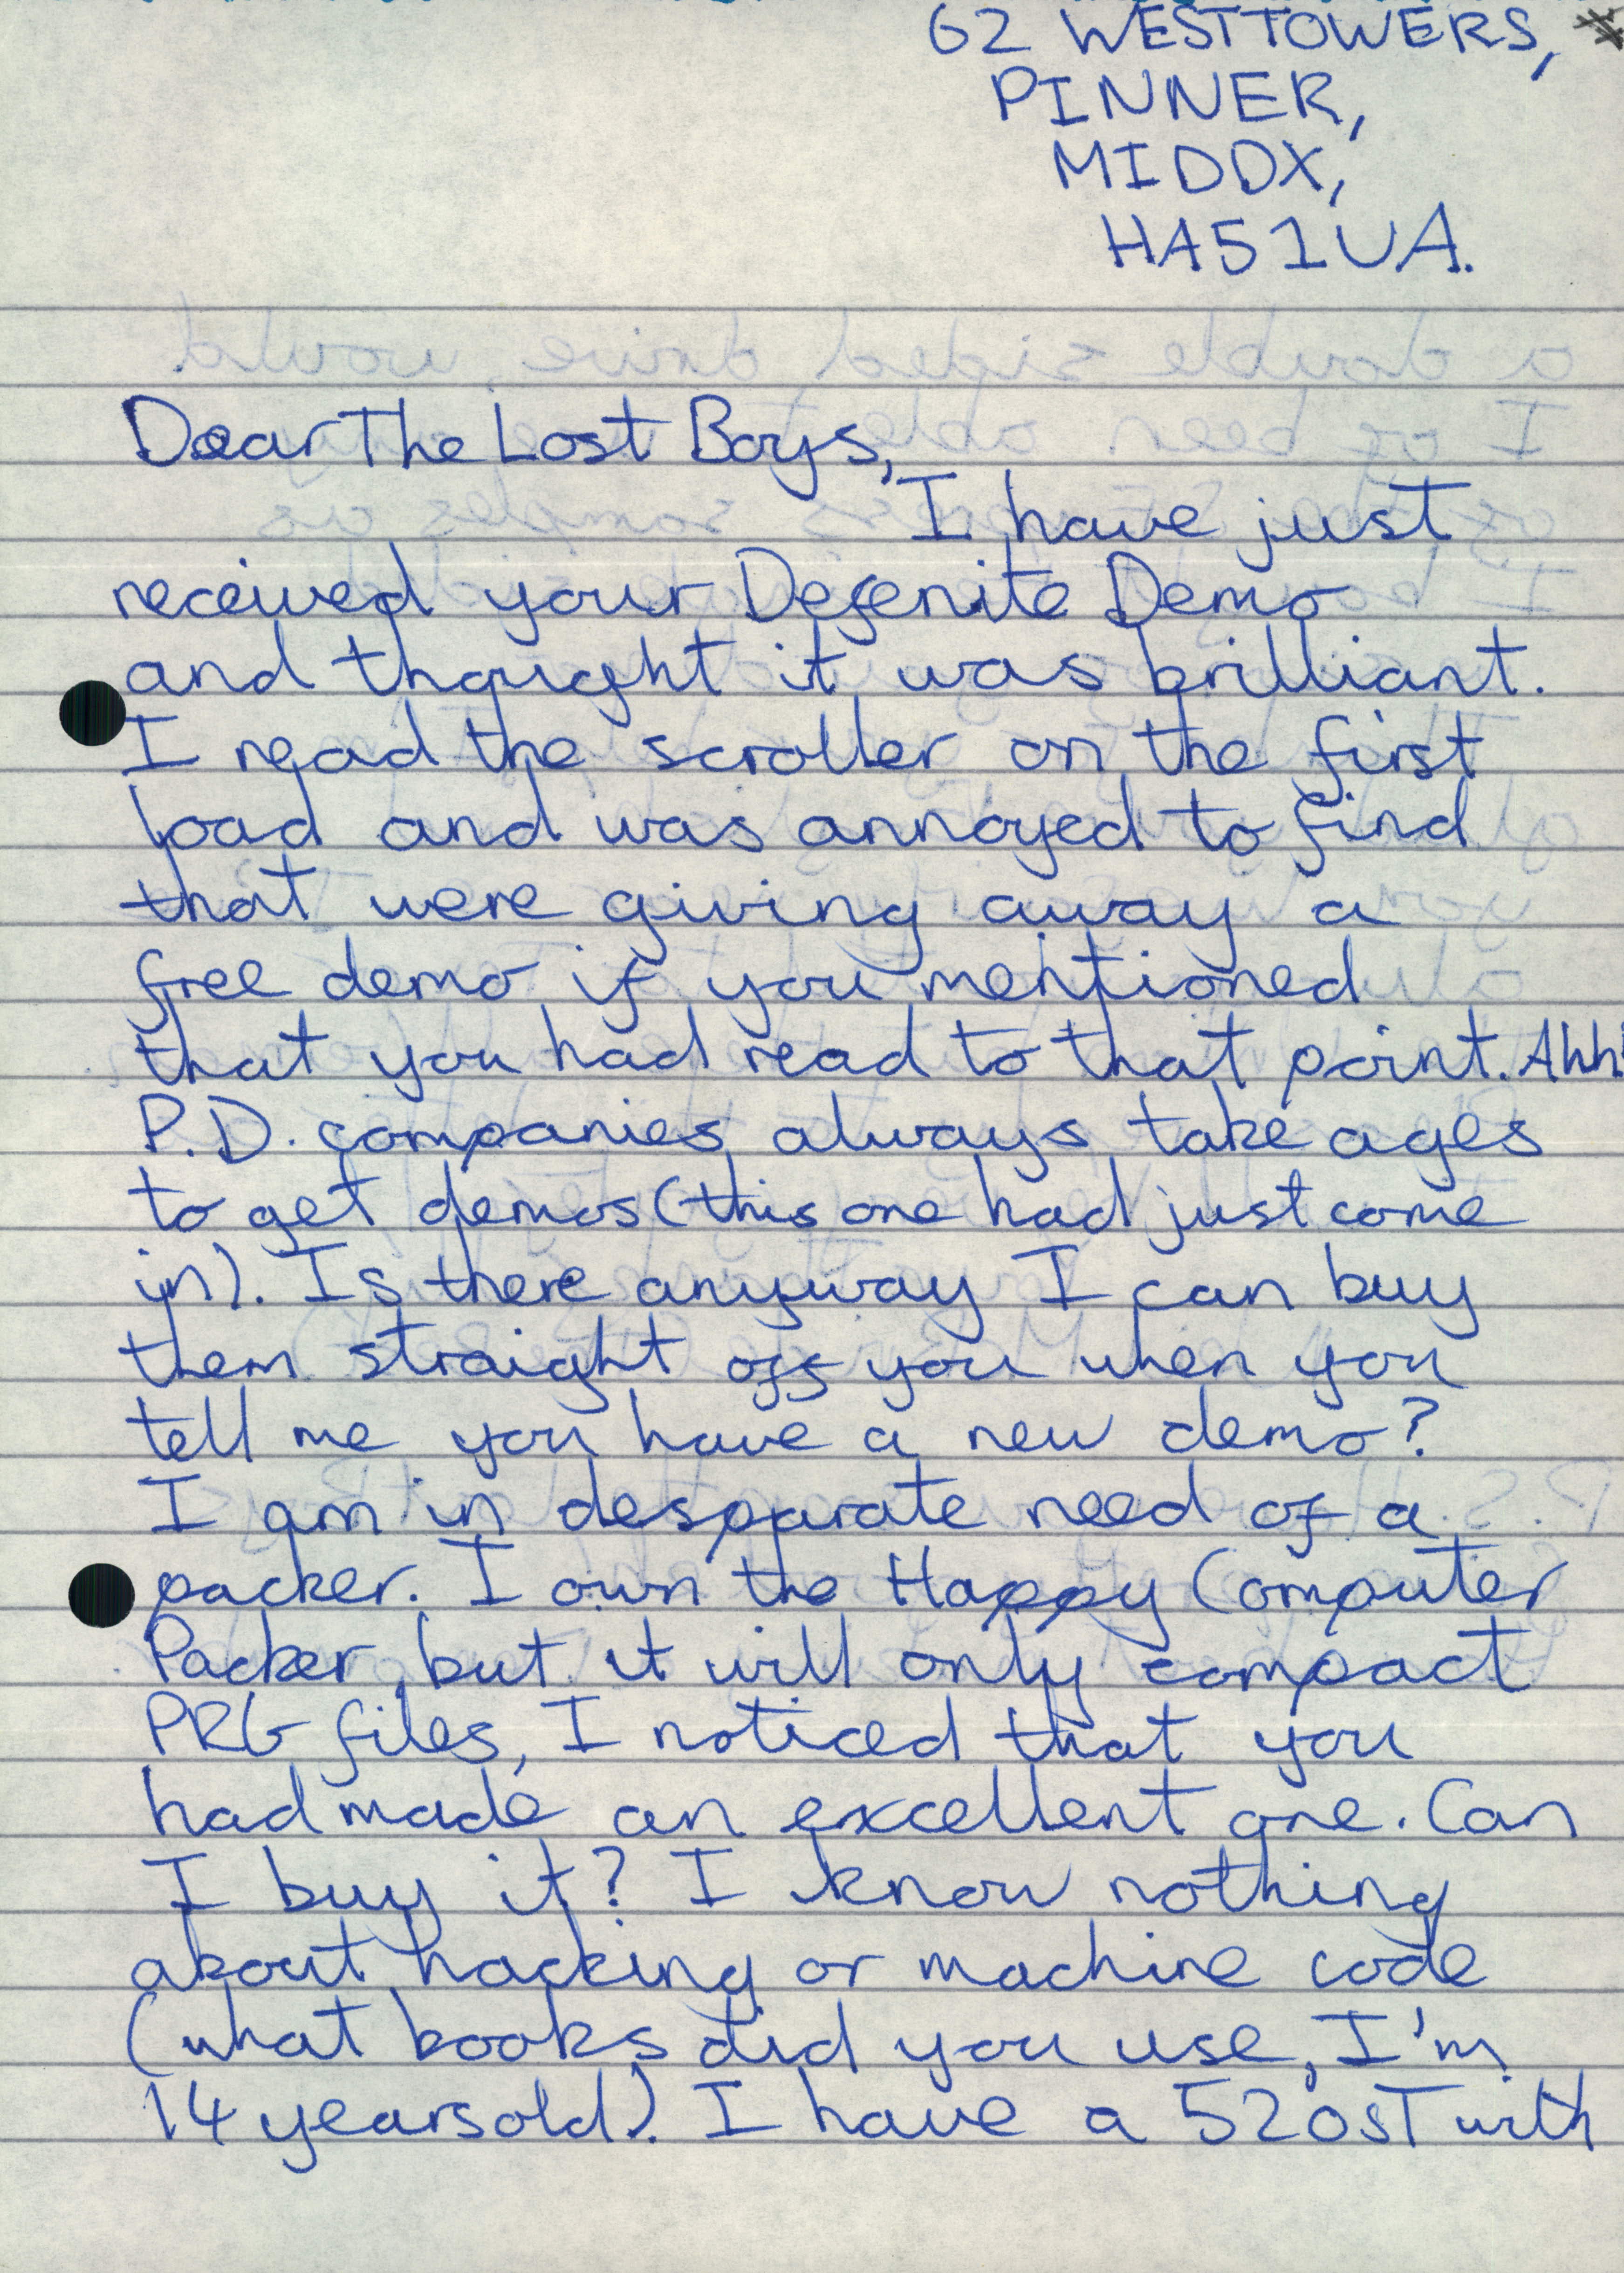 62 WESTTOWERS,
PINNER,
MIDDX,
HA5 1UA.
Dear The Lost Boys,
I have just
received your Defenite Demo
and thought it was brilliant.
I read the scroller on the first
load and was annoyed to find
that were giving away a
free demo if you mentioned
that you had read to that point. Ahh!
P.D. companies always take ages
to get demos (this one had just come
in). Is there anyway I can buy
them straight off you when you
tell me you have a new demo?
I am in desparate need of a
packer. I own the Happy Computer
Packer, but it will only compact
PRG files, I noticed that you
had made an excellent one. Can
I buy it? I know nothing
about hacking or machine code
(what books did you use, I'm
14 years old). I have a 520sT with